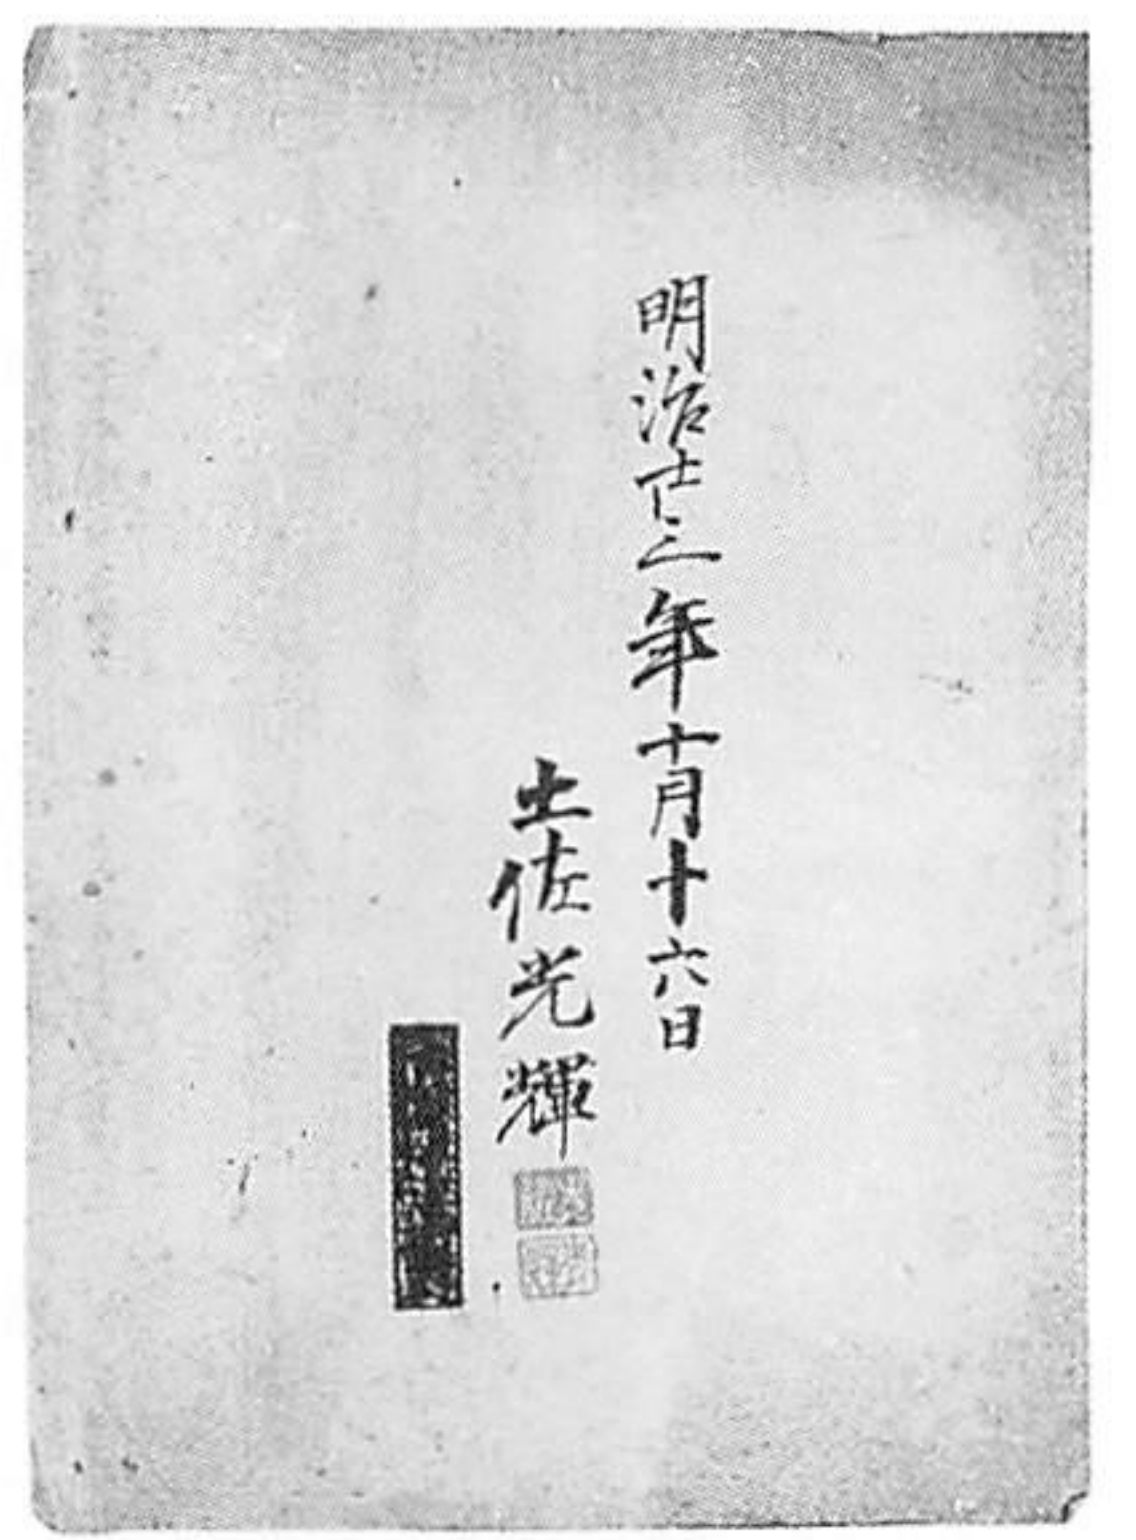 明治廿三年十月十六日
土佐光輝